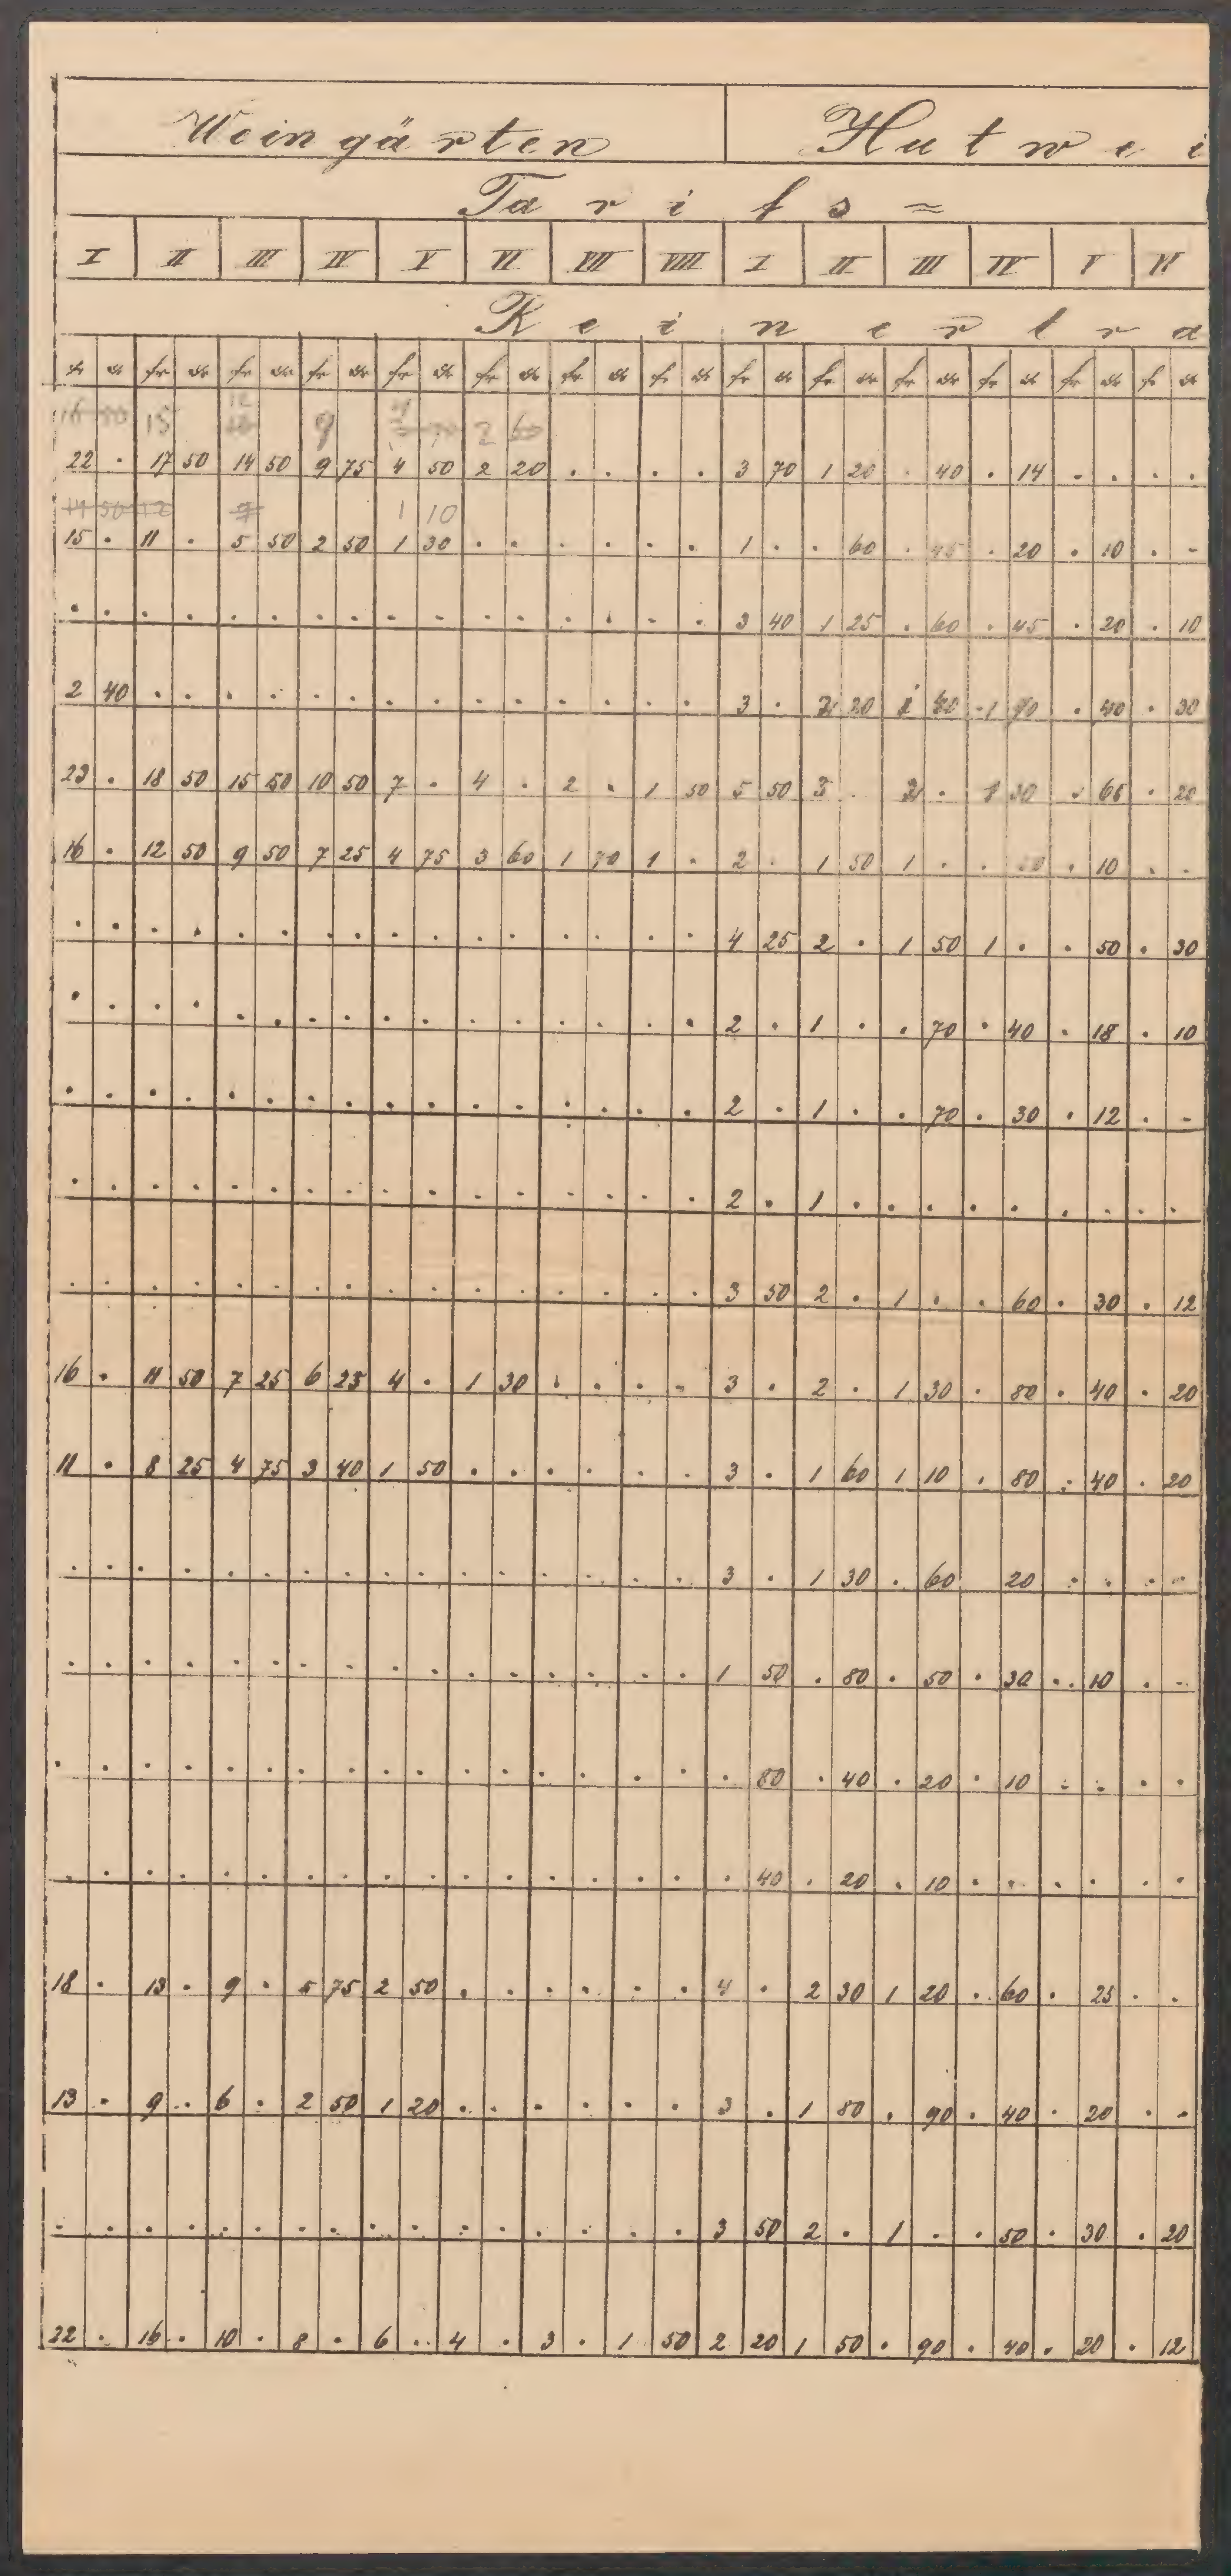 Weingärten Hutwei
Tarifs =
I II III IV V VI VII VIII I II III IV V VI
Reinertra
fr kr fr kr fr kr fr kr fr kr fr kr fr kr fr kr fr kr fr kr fr kr fr kr fr kr fr kr
15 12 9 4 2 60
22 . 17 50 14 50 9 75 4 50 2 20 . . . . 3 70 1 20 . 40 . 14 . . . .
14 50 12 9 1 10
15 . 11 . 5 50 2 50 1 30 . . . . . . 1 . . 60 . 45 . 20 . 10 . .
. . . . . . . . . . . . . . . . 3 40 1 25 . 60 . 45 . 20 . 10
2 40 . . . . . . . . . . . . . . 3 . 2 20 1 . 40 . 30
23 . 18 50 15 50 10 50 7 . 4 . 2 . 1 50 5 50 3 . 2 . 1 30 . 65 . 20
16 . 12 50 9 50 7 25 4 75 3 60 1 70 1 . 2 . 1 50 1 . . . 10 . .
. . . . . . . . . . . . . . . . 4 25 2 . 1 50 1 . . 50 . 30
. . . . . . . . . . . . . . . . 2 . 1 . . 70 . 40 . 18 . 10
. . . . . . . . . . . . . . . . 2 . 1 . . 70 . 30 . 12 . .
. . . . . . . . . . . . . . . . 2 . 1 . . . . . . . . .
. . . . . . . . . . . . . . . . 3 50 2 . 1 . . 60 . 30 . 12
16 . 11 50 7 25 6 25 4 . 1 30 . . . . 3 . 2 . 1 30 . 80 . 40 . 20
11 . 8 25 4 75 3 40 1 50 . . . . . . 3 . 1 60 1 10 . 80 . 40 . 20
. . . . . . . . . . . . . . . . 3 . 1 30 . 60 20 . . . .
. . . . . . . . . . . . . . . . 1 50 . 80 . 50 . 30 . 10 . .
. . . . . . . . . . . . . . . . . 80 . 40 . 20 . 10 . . . .
. . . . . . . . . . . . . . . . . 40 . 20 . 10 . . . . . .
18 . 13 . 9 . 5 75 2 50 . . . . . . 4 . 2 30 1 20 . 60 . 25 . .
13 . 9 . 6 . 2 50 1 20 . . . . . . 3 . 1 80 . 90 . 40 . 20 . .
. . . . . . . . . . . . . . . . 3 50 2 . 1 . . 50 . 30 . 20
22 . 16 . 10 . 8 . 6 . 4 . 3 . 1 50 2 20 1 50 . 90 . 40 . 20 . 12